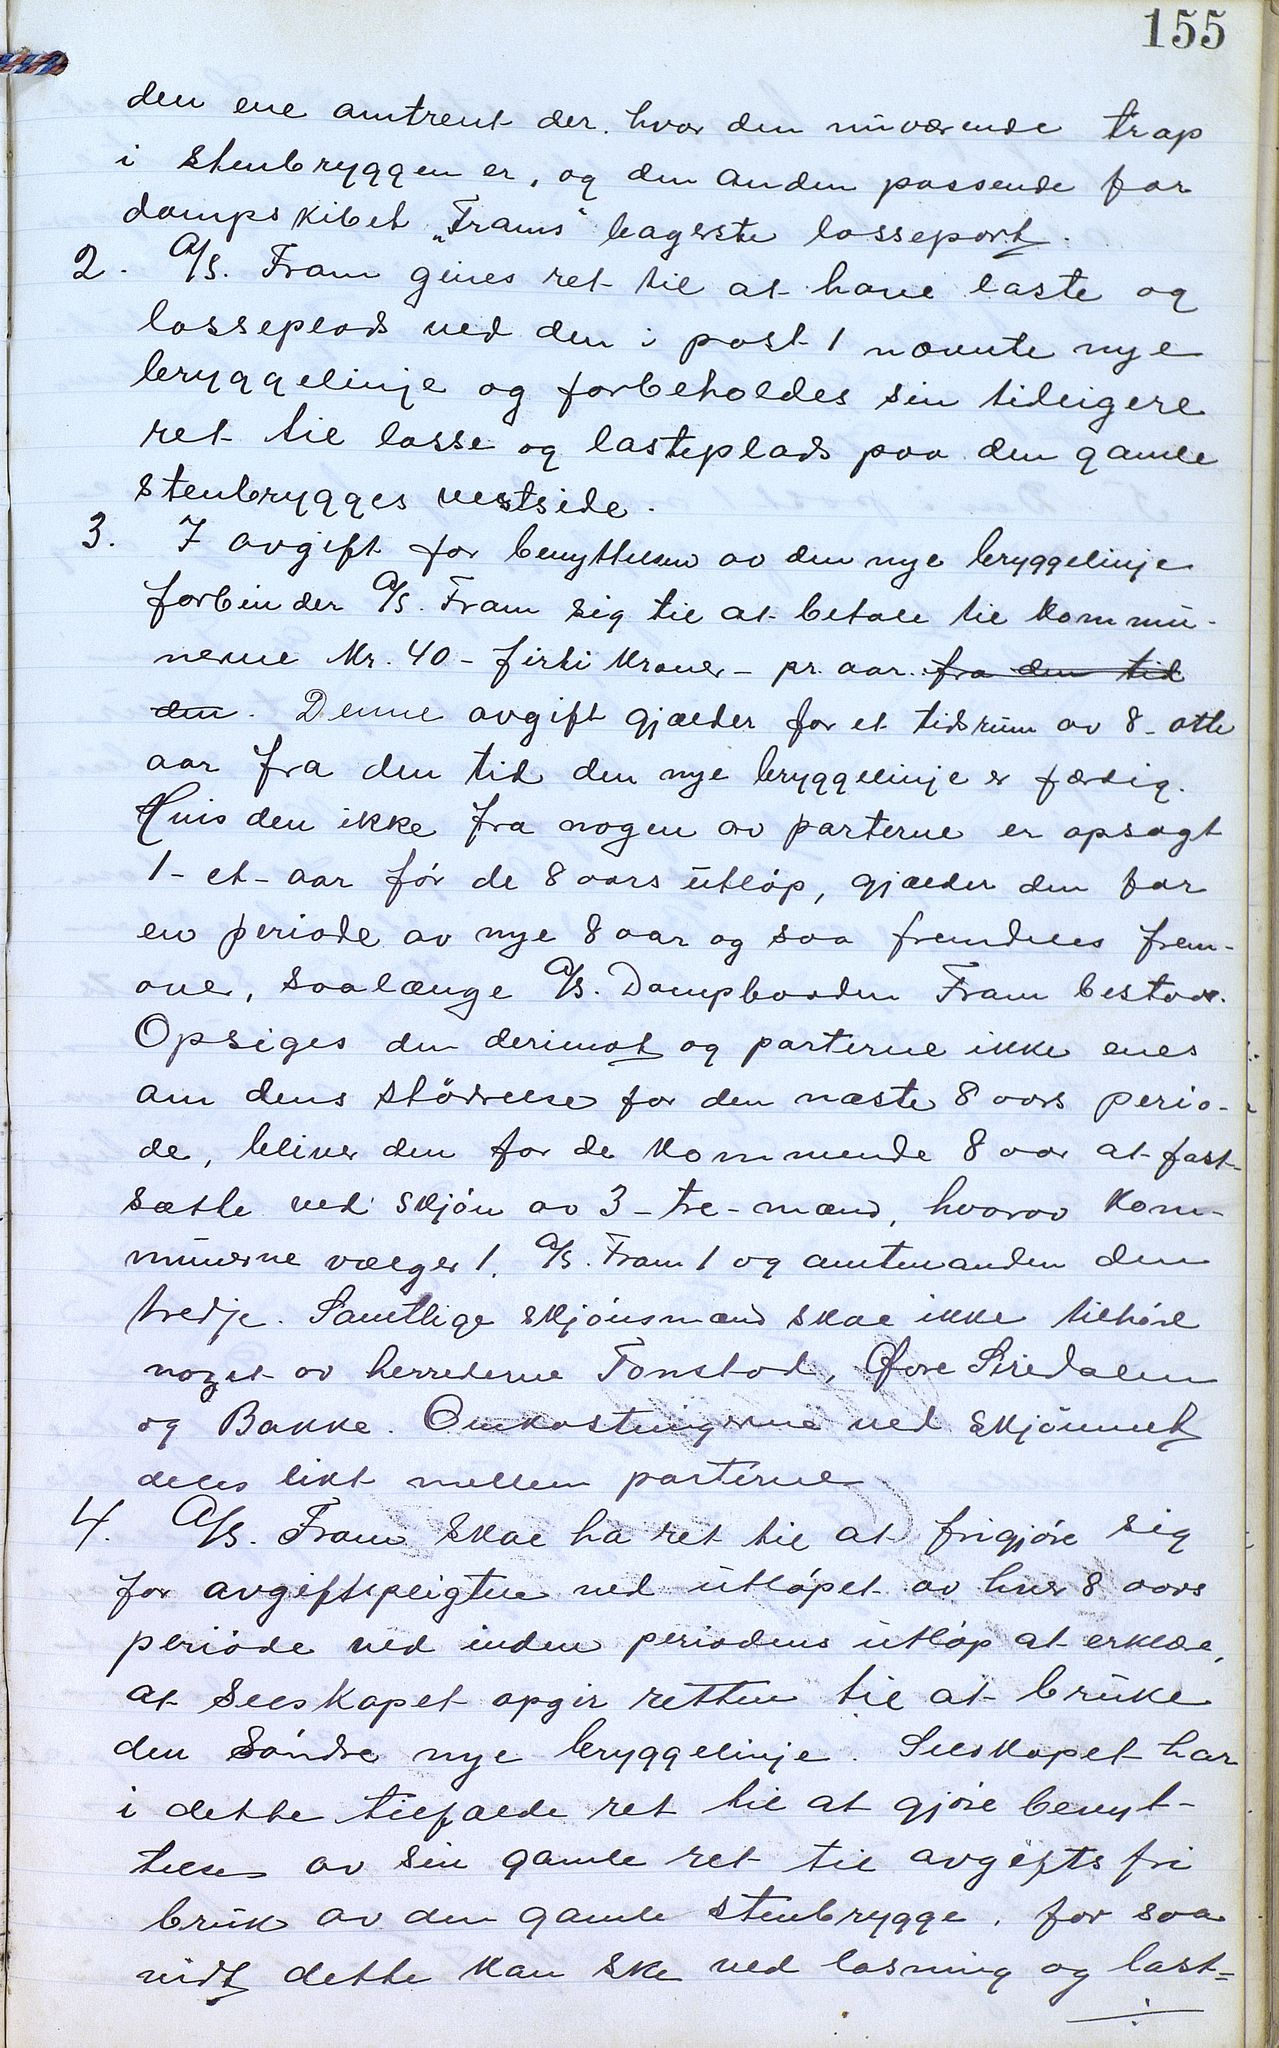 155
den ene omtrent der hvor den nuværende trap
i stenbryggen er, og den anden passende for
dampskibet „Frams" bagerste losseport.
2. A/S. Fram gives ret til at have laste og
losseplads ved den i post 1 nævnte nye
bryggelinje og forbeholdes sin tidligere
ret til losse og lasteplads paa den gamle
stenbrygges vestside.
3. I avgift for benyttelsen av den nye bryggelinje
forbinder A/S. Fram sig til at betale til kommu-
nerne Kr. 40 - firti kroner - pr. aar. fra den tid
den. Denne avgift gjælder for et tidsrum av 8 - otte
aar fra den tid den nye bryggelinje er færdig.
Hvis den ikke fra nogen av parterne er opsagt
1 - et - aar før de 8 aars utløp, gjælder den for
en periode av nye 8 aar og saa fremdeles frem-
over, saalænge A/S. Dampbaaden Fram bestaar.
Opsiges den derimot og parterne ikke enes
om dens størrelse for den næste 8 aars perio-
de, bliver den for de kommende 8 aar at fast-
sætte ved skjøn av 3 - tre - mænd, hvorav kom-
munerne vælger 1, A/S. Fram 1 og amtmanden den
tredje. Samtlige skjønsmænd skal ikke tilhøre
noget av herrederne Tonstad, Øvre Siredalen
og Bakke. Omkostningerne ved skjønnet
deles likt mellem parterne
4. A/S. Fram skal ha ret til at frigjøre sig
for avgiftspligten ved utløpet av hver 8 aars
periode ved inden periodens utløp at erklære,
at selskapet opgir retten til at bruke
den søndre nye bryggelinje. Selskapet har
i dette tilfælde ret til at gjøre benyt-
telse av sin gamle ret til avgifts fri
bruk av den gamle stenbrygge, for saa
vidt dette kan ske ved losning og last=